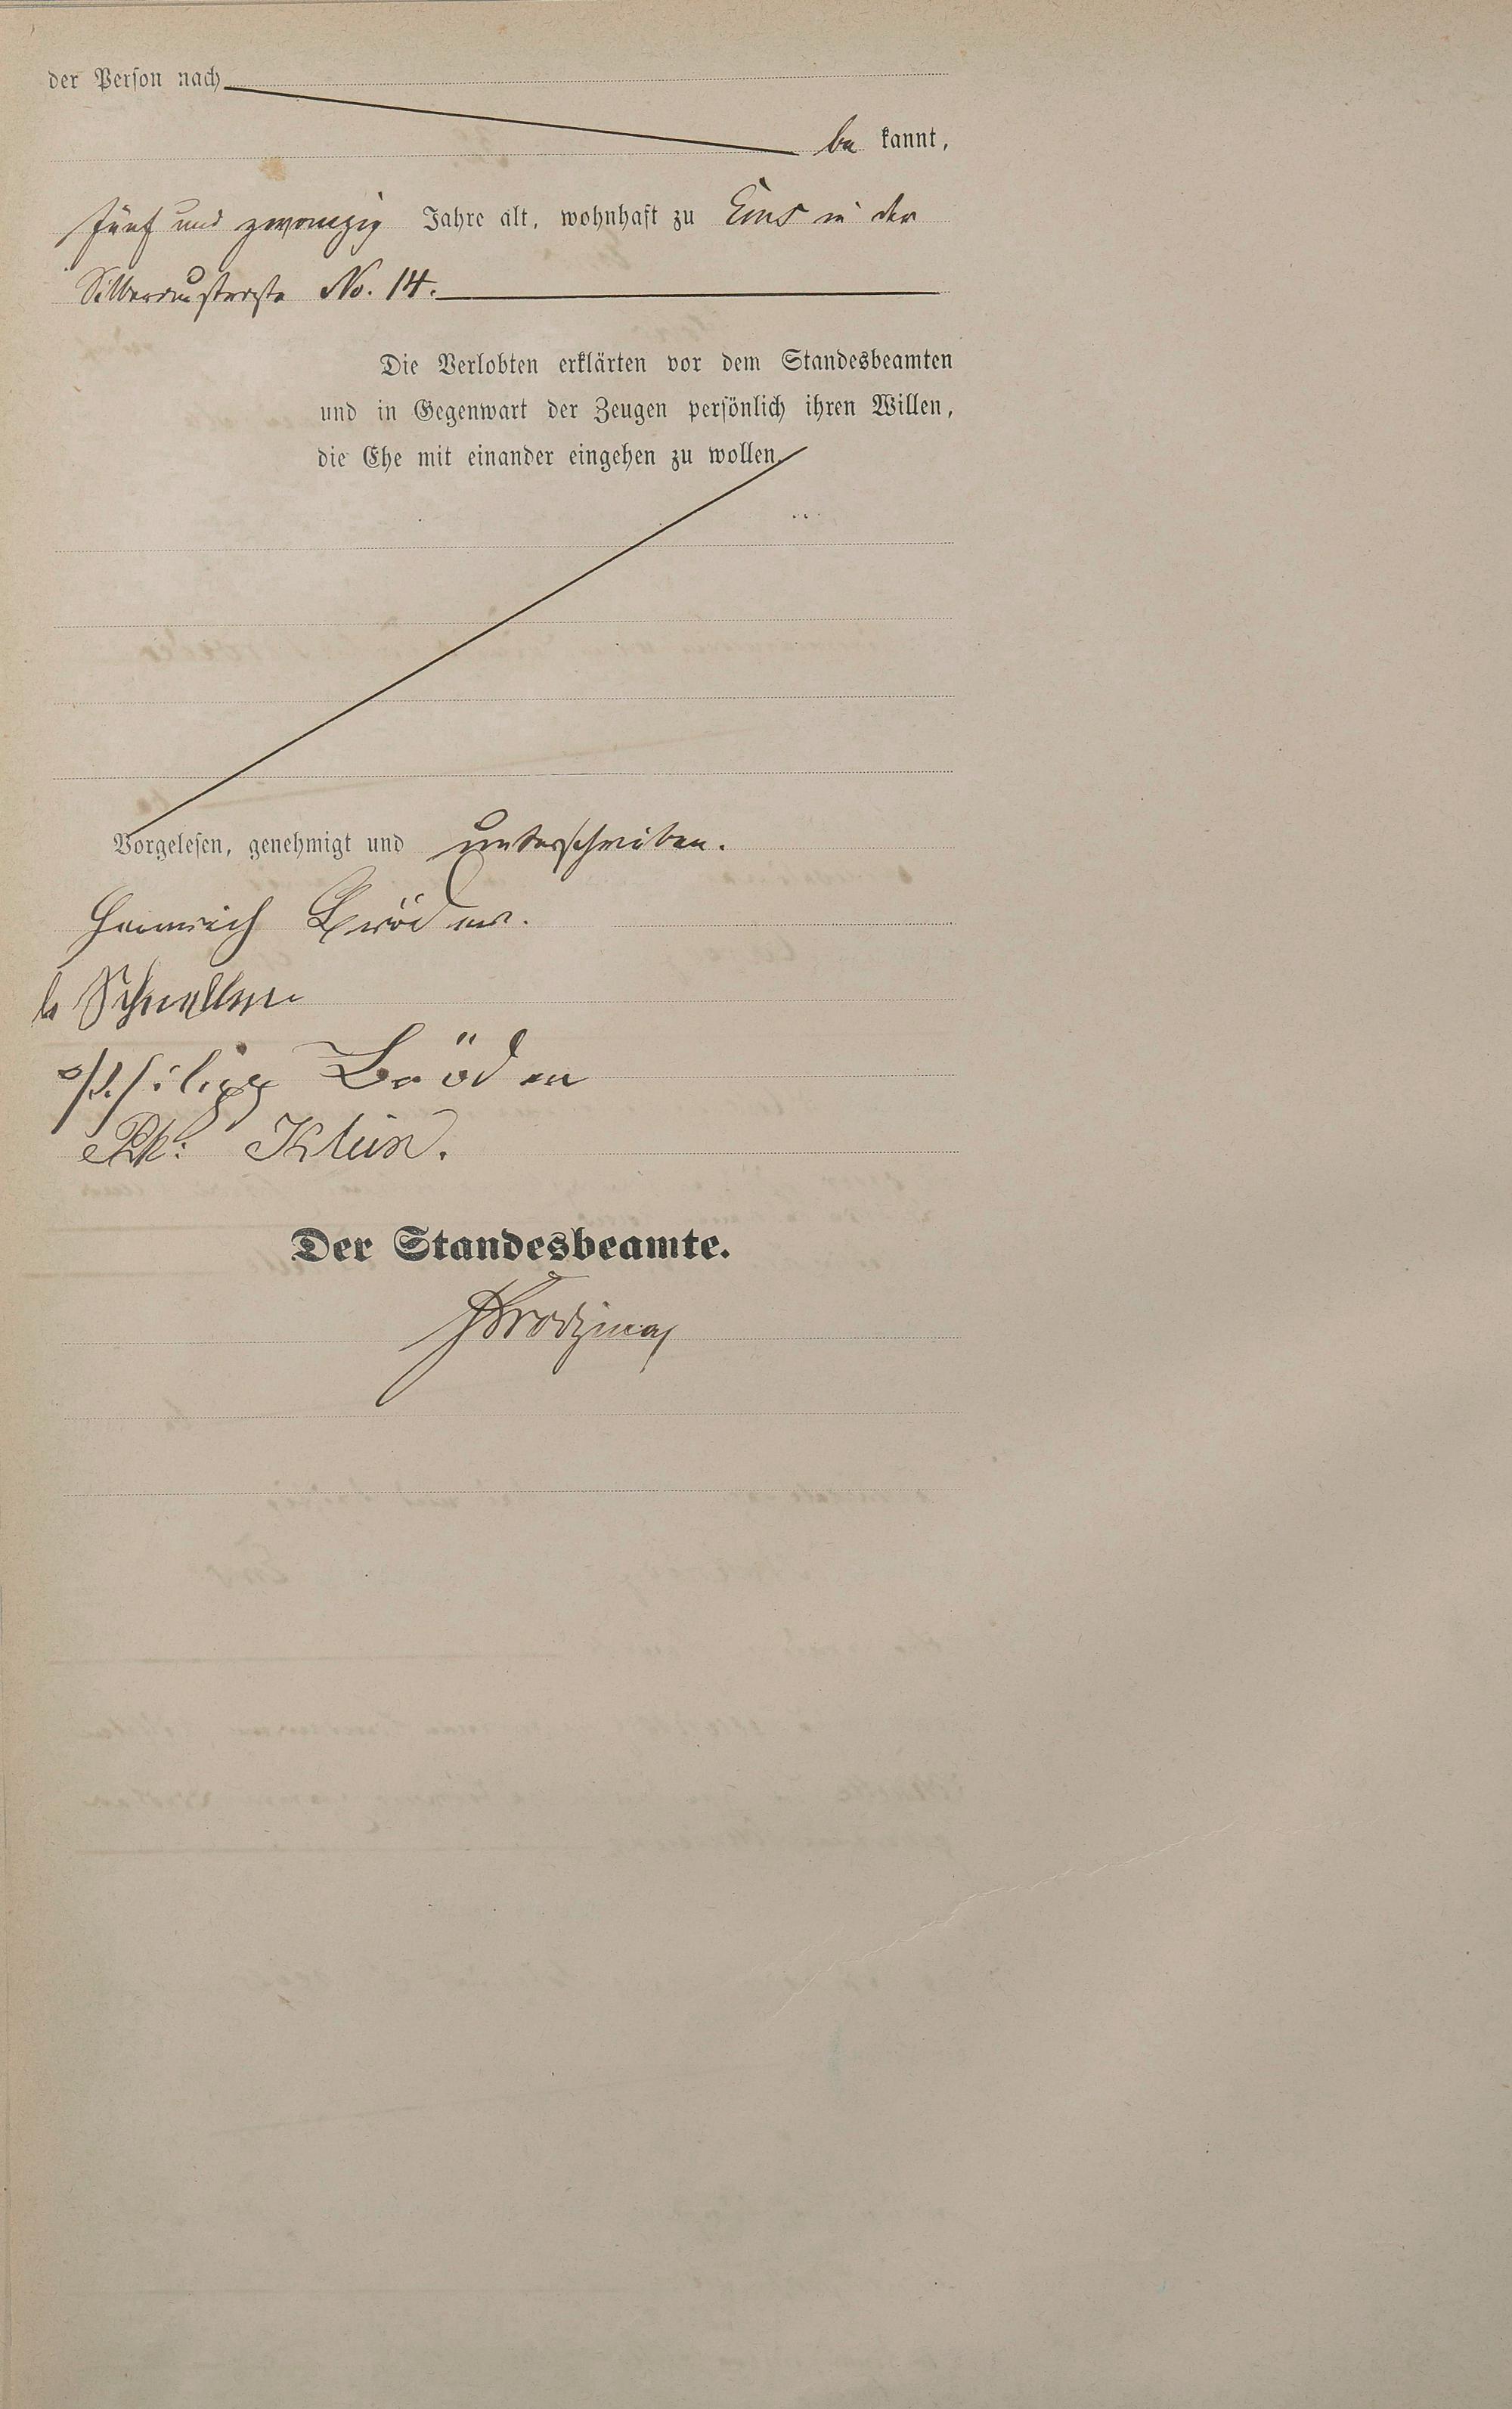 der Person nach
be kannt,
fünf und zwanzig Jahre alt, wohnhaft zu Ems in der
Silberaustraße No. 14.
Die Verlobten erklärten vor dem Standesbeamten
und in Gegenwart der Zeugen persönlich ihren Willen,
die Ehe mit einander eingehen zu wollen.
Vorgelesen, genehmigt und unterschrieben.
Heinrich Bröder.
Philipp Bröder
Ph: Klein.
Der Standesbeamte.